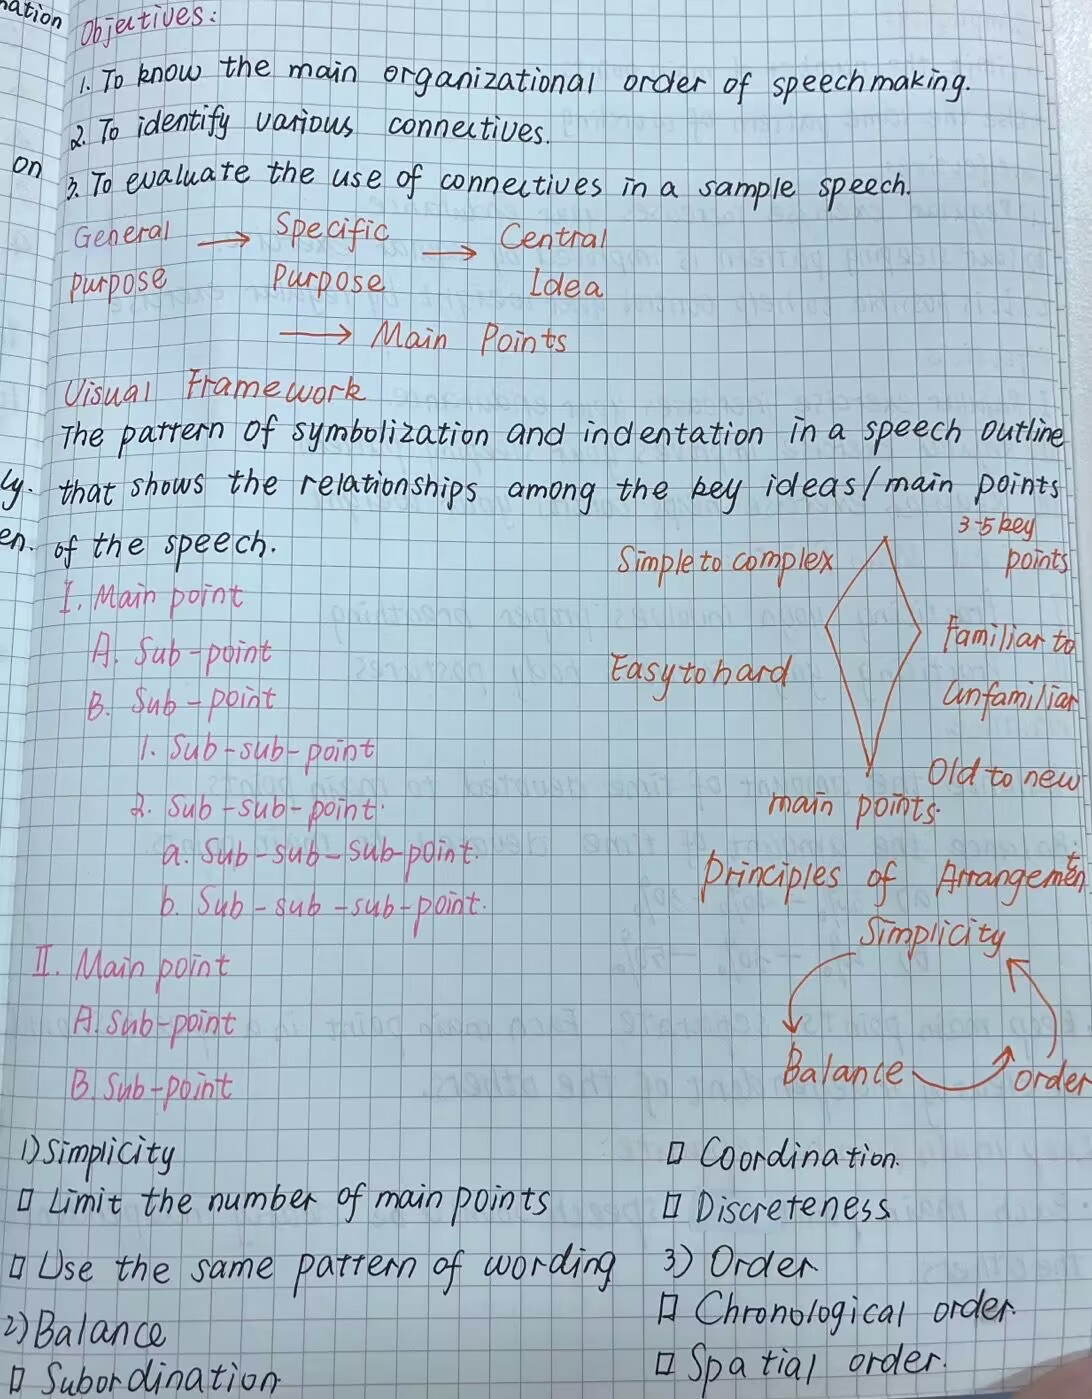 nation
Objectives:
1. To know the main organizational order of speechmaking.
2. To identify various connectives.
on
3. To evaluate the use of connectives in a sample speech.
General → Specific → Central
purpose Purpose Idea
→ Main Points
Visual Framework
The pattern of symbolization and indentation in a speech outline
ly. that shows the relationships among the key ideas/main points
en. of the speech.
I. Main point
A. Sub-point
B. Sub-point
1. Sub-sub-point
2. Sub-sub-point.
a. Sub-sub-sub-point.
b. Sub-sub-sub-point.
II. Main point
A. Sub-point
B. Sub-point
3-5 key
points
Simple to complex
Familiar to
Unfamiliar
Easy to hard
Old to new
main points.
Principles of Arrangement
Simplicity
Balance
order
1) Simplicity
□ Limit the number of main points
□ Use the same pattern of wording
2) Balance
□ Subordination
□ Coordination.
□ Discreteness
3) Order
□ Chronological order.
□ Spatial order.